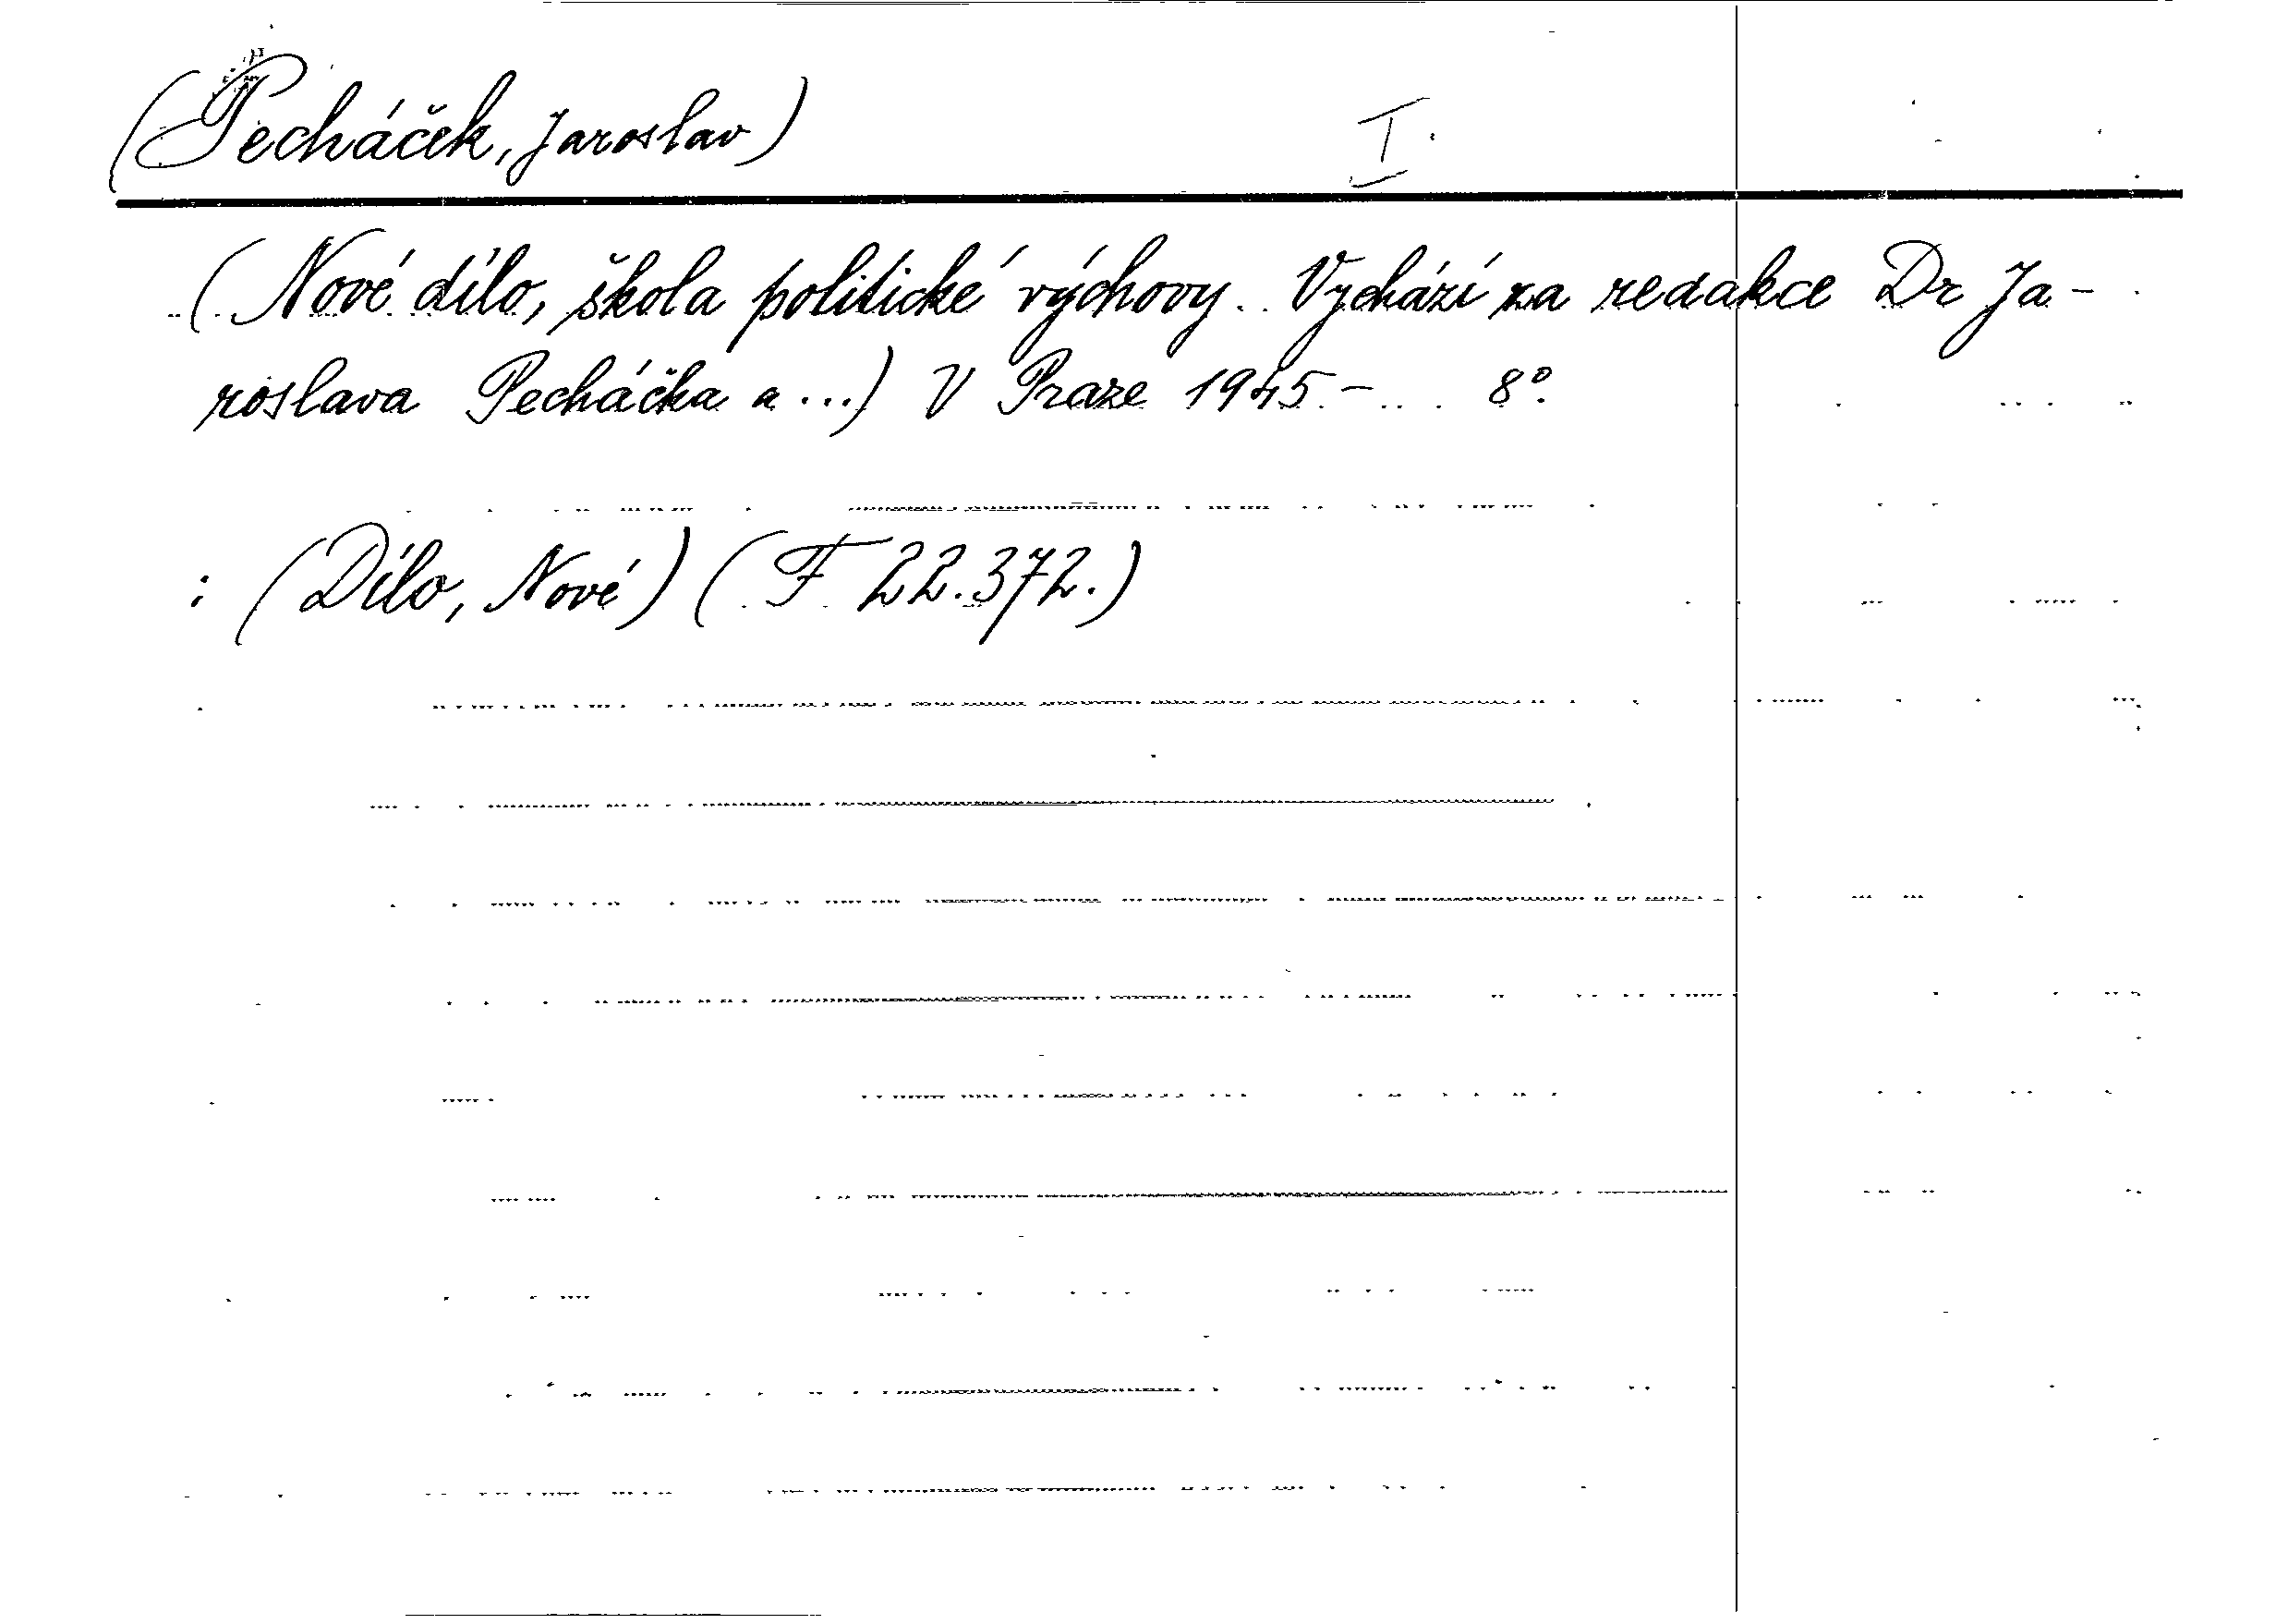 (Pecháček, Jaroslav) I.
(Nové dílo, škola politické výchovy. Vychází za redakce Dr Ja-
roslava Pecháčka a ...) V Praze 1945.- 8°.
: (Dílo, Nové) (F 22.372.)